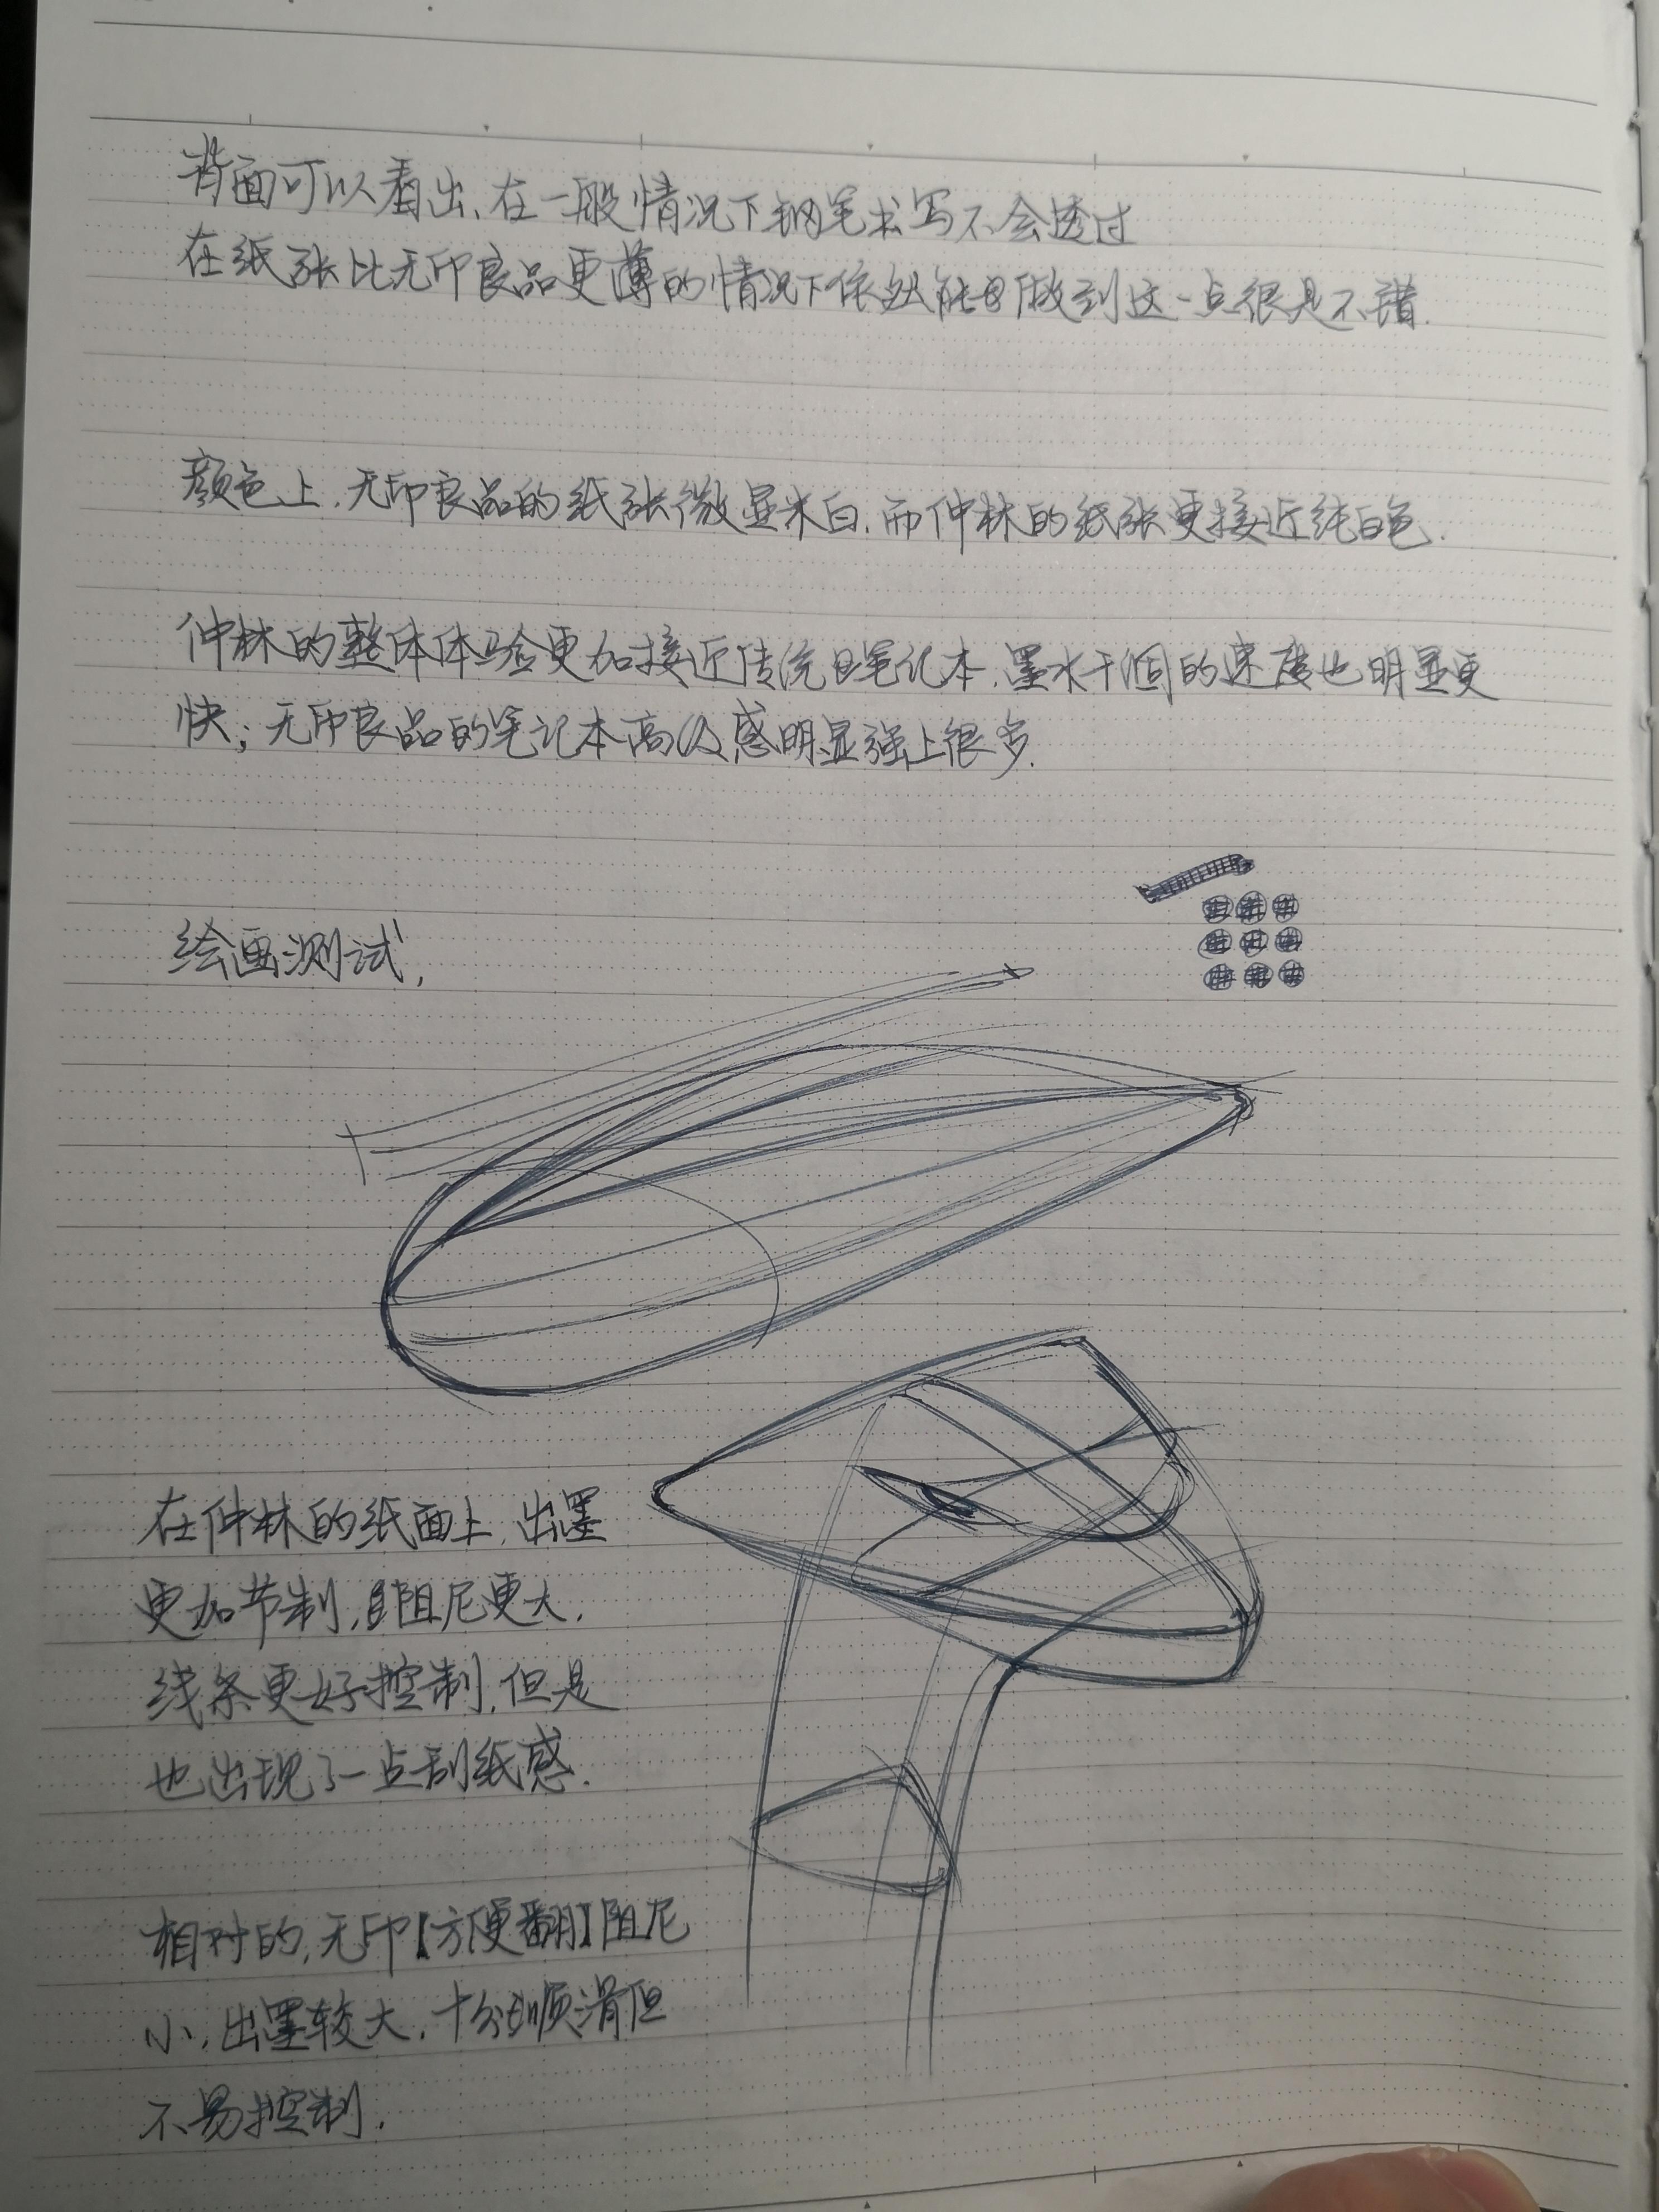 背面可以看出、在一般情况下钢笔书写不会透过
在纸张比无印良品更薄的情况下依然能够做到这一点很是不错.
颜色上,无印良品的纸张微显米白,而仲林的纸张更接近纯白色.
仲林的整体体验更加接近传统笔记本,墨水干涸的速度也明显更
快;无印良品的笔记本高级感明显强上很多.
绘画测试,
在仲林的纸面上,出墨
更加节制,阻尼更大,
线条更好控制,但是
也出现了一点刮纸感.
相对的,无印【方便翻】阻尼
小,出墨较大,十分顺滑但
不易控制.